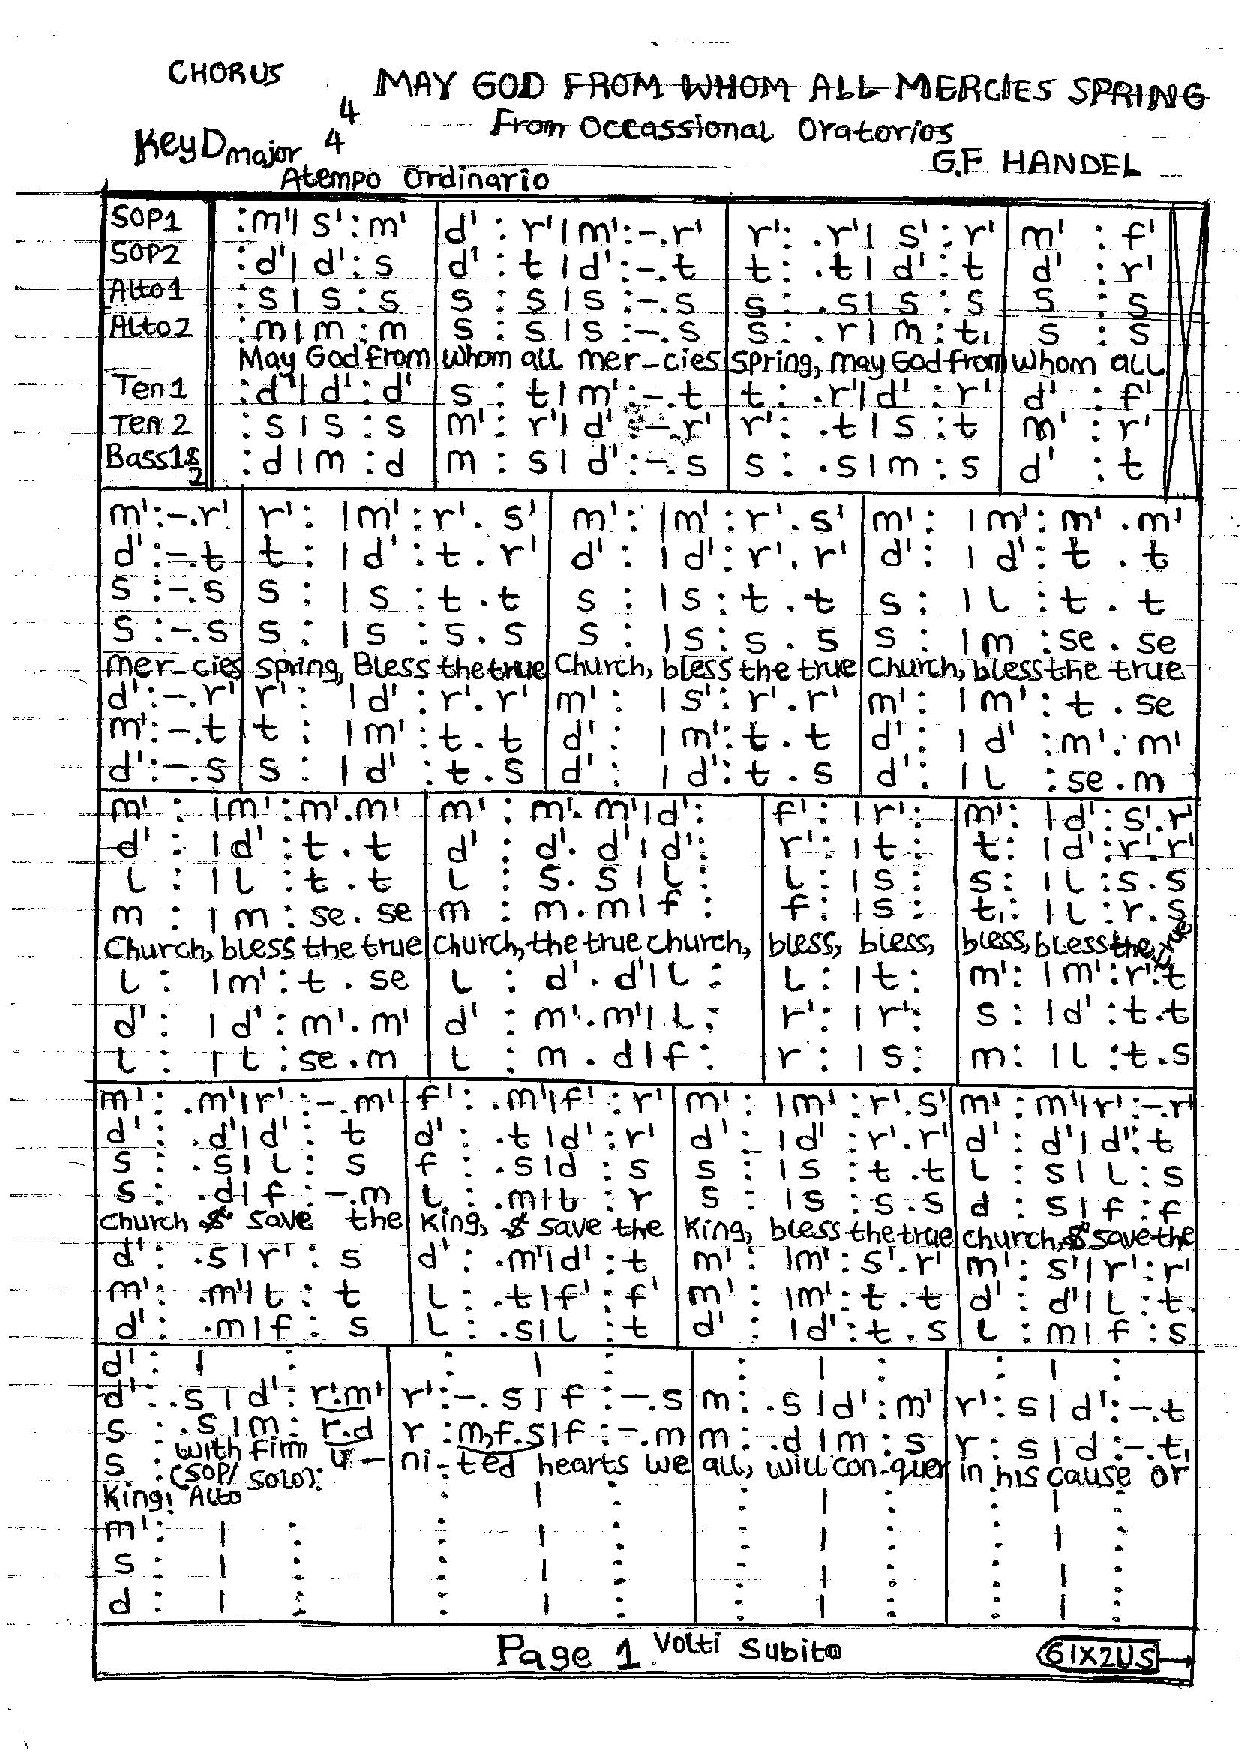 CHORUS
MAY GOD FROM WHOM ALL MERCIES SPRING
From Occassional Oratorios
Key D major 4 4
G.F HANDEL
Atempo Ordinario
SOP1 :m'| s':m' | d' : r'| m':-.r' | r': .r'| s':r' | m' : f'
SOP2 :d'| d':s | d' : t | d':-.t | t: .t| d':t | d' : r'
Alto1 :s | s:s | s : s | s:-.s | s: .s| s:s | s : s
Alto2 :m | m:m | s : s | s:-.s | s: .r| m:t, | s : s
May God from whom all mer-cies spring, may God from whom all
Ten1 :d'| d':d' | s : t | m':-.t | t: .r'| d':r' | d' : f'
Ten 2 :s | s:s | m' : r'| d':-.r' | r': .t| s:t | m' : r'
Bass1&2 :d | m:d | m : s | d':-.s | s: .s| m:s | d' : t
m':-.r' | r': |m':r'.s' | m': |m':r'.s' | m': |m':m'.m'
d':-.t | t: |d':t.r' | d': |d':r'.r' | d': |d':t.t
s:-.s | s: |s:t.t | s: |s:t.t | s: |l:t.t
s:-.s | s: |s:s.s | s: |s:s.s | s: |m:se.se
mer-cies spring, Bless the true Church, bless the true Church, bless the true
d':-.r' | r': |d':r'.r' | m': |s':r'.r' | m': |m':t.se
m':-.t | t: |m':t.t | d': |m':t.t | d': |d':m'.m'
d':-.s | s: |d':t.s | d': |d':t.s | d': |l:se.m
m': |m':m'.m' | m':m'.m'|d': | f': |r': | m': |d':s'.r'
d': |d':t.t | d':d'.d'|d': | r': |t: | t: |d':r'.r'
l: |l:t.t | l:s.s|l: | l: |s: | s: |l:s.s
m: |m:se.se | m:m.m|f: | f: |s: | t,: |l:r.s
Church, bless the true church, the true church, bless, bless, bless, bless the true
l: |m':t.se | l:d'.d'|l: | l: |t: | m': |m':r'.t
d': |d':m'.m' | d':m'.m'|l: | r': |r': | s: |d':t.t
l: |l:se.m | l:m.d|f: | r: |s: | m: |l:t.s
m': .m'|r':-.m' | f': .m'|f':r' | m': |m':r'.s' | m':m'|r':-.r'
d': .d'|d':t | d': .t|d':r' | d': |d':r'.r' | d':d'|d':t
s: .s|l:s | f: .s|d:s | s: |s:t.t | l:s|l:s
s: .d|f:-.m | l: .m|l:r | s: |s:s.s | d:s|f:f
church & save the King, & save the King, bless the true church, & save the
d': .s|r':s | d': .m'|d':t | m': |m':s'.r' | m':s'|r':r'
m': .m'|t:t | l: .t|f':f' | m': |m':t.t | d':d'|l:t
d': .m|f:s | l: .s|l:t | d': |d':t.s | l:m|f:s
d': | : | : | : | : | : | : | :
d': .s|d':r'.m' | r':-.s|f:-.s | m: .s|d':m' | r':s|d':-.t
s: .s|m:r.d | r:m,f.s|f:-.m | m: .d|m:s | r:s|d:-.t,
s : with firm u-ni-ted hearts we all, will con-quer in his cause or
(SOP/ Alto Solo):
King!
m': | : | : | : | : | : | : | :
s : | : | : | : | : | : | : | :
d : | : | : | : | : | : | : | :
Page 1 Volti Subito
61X2US